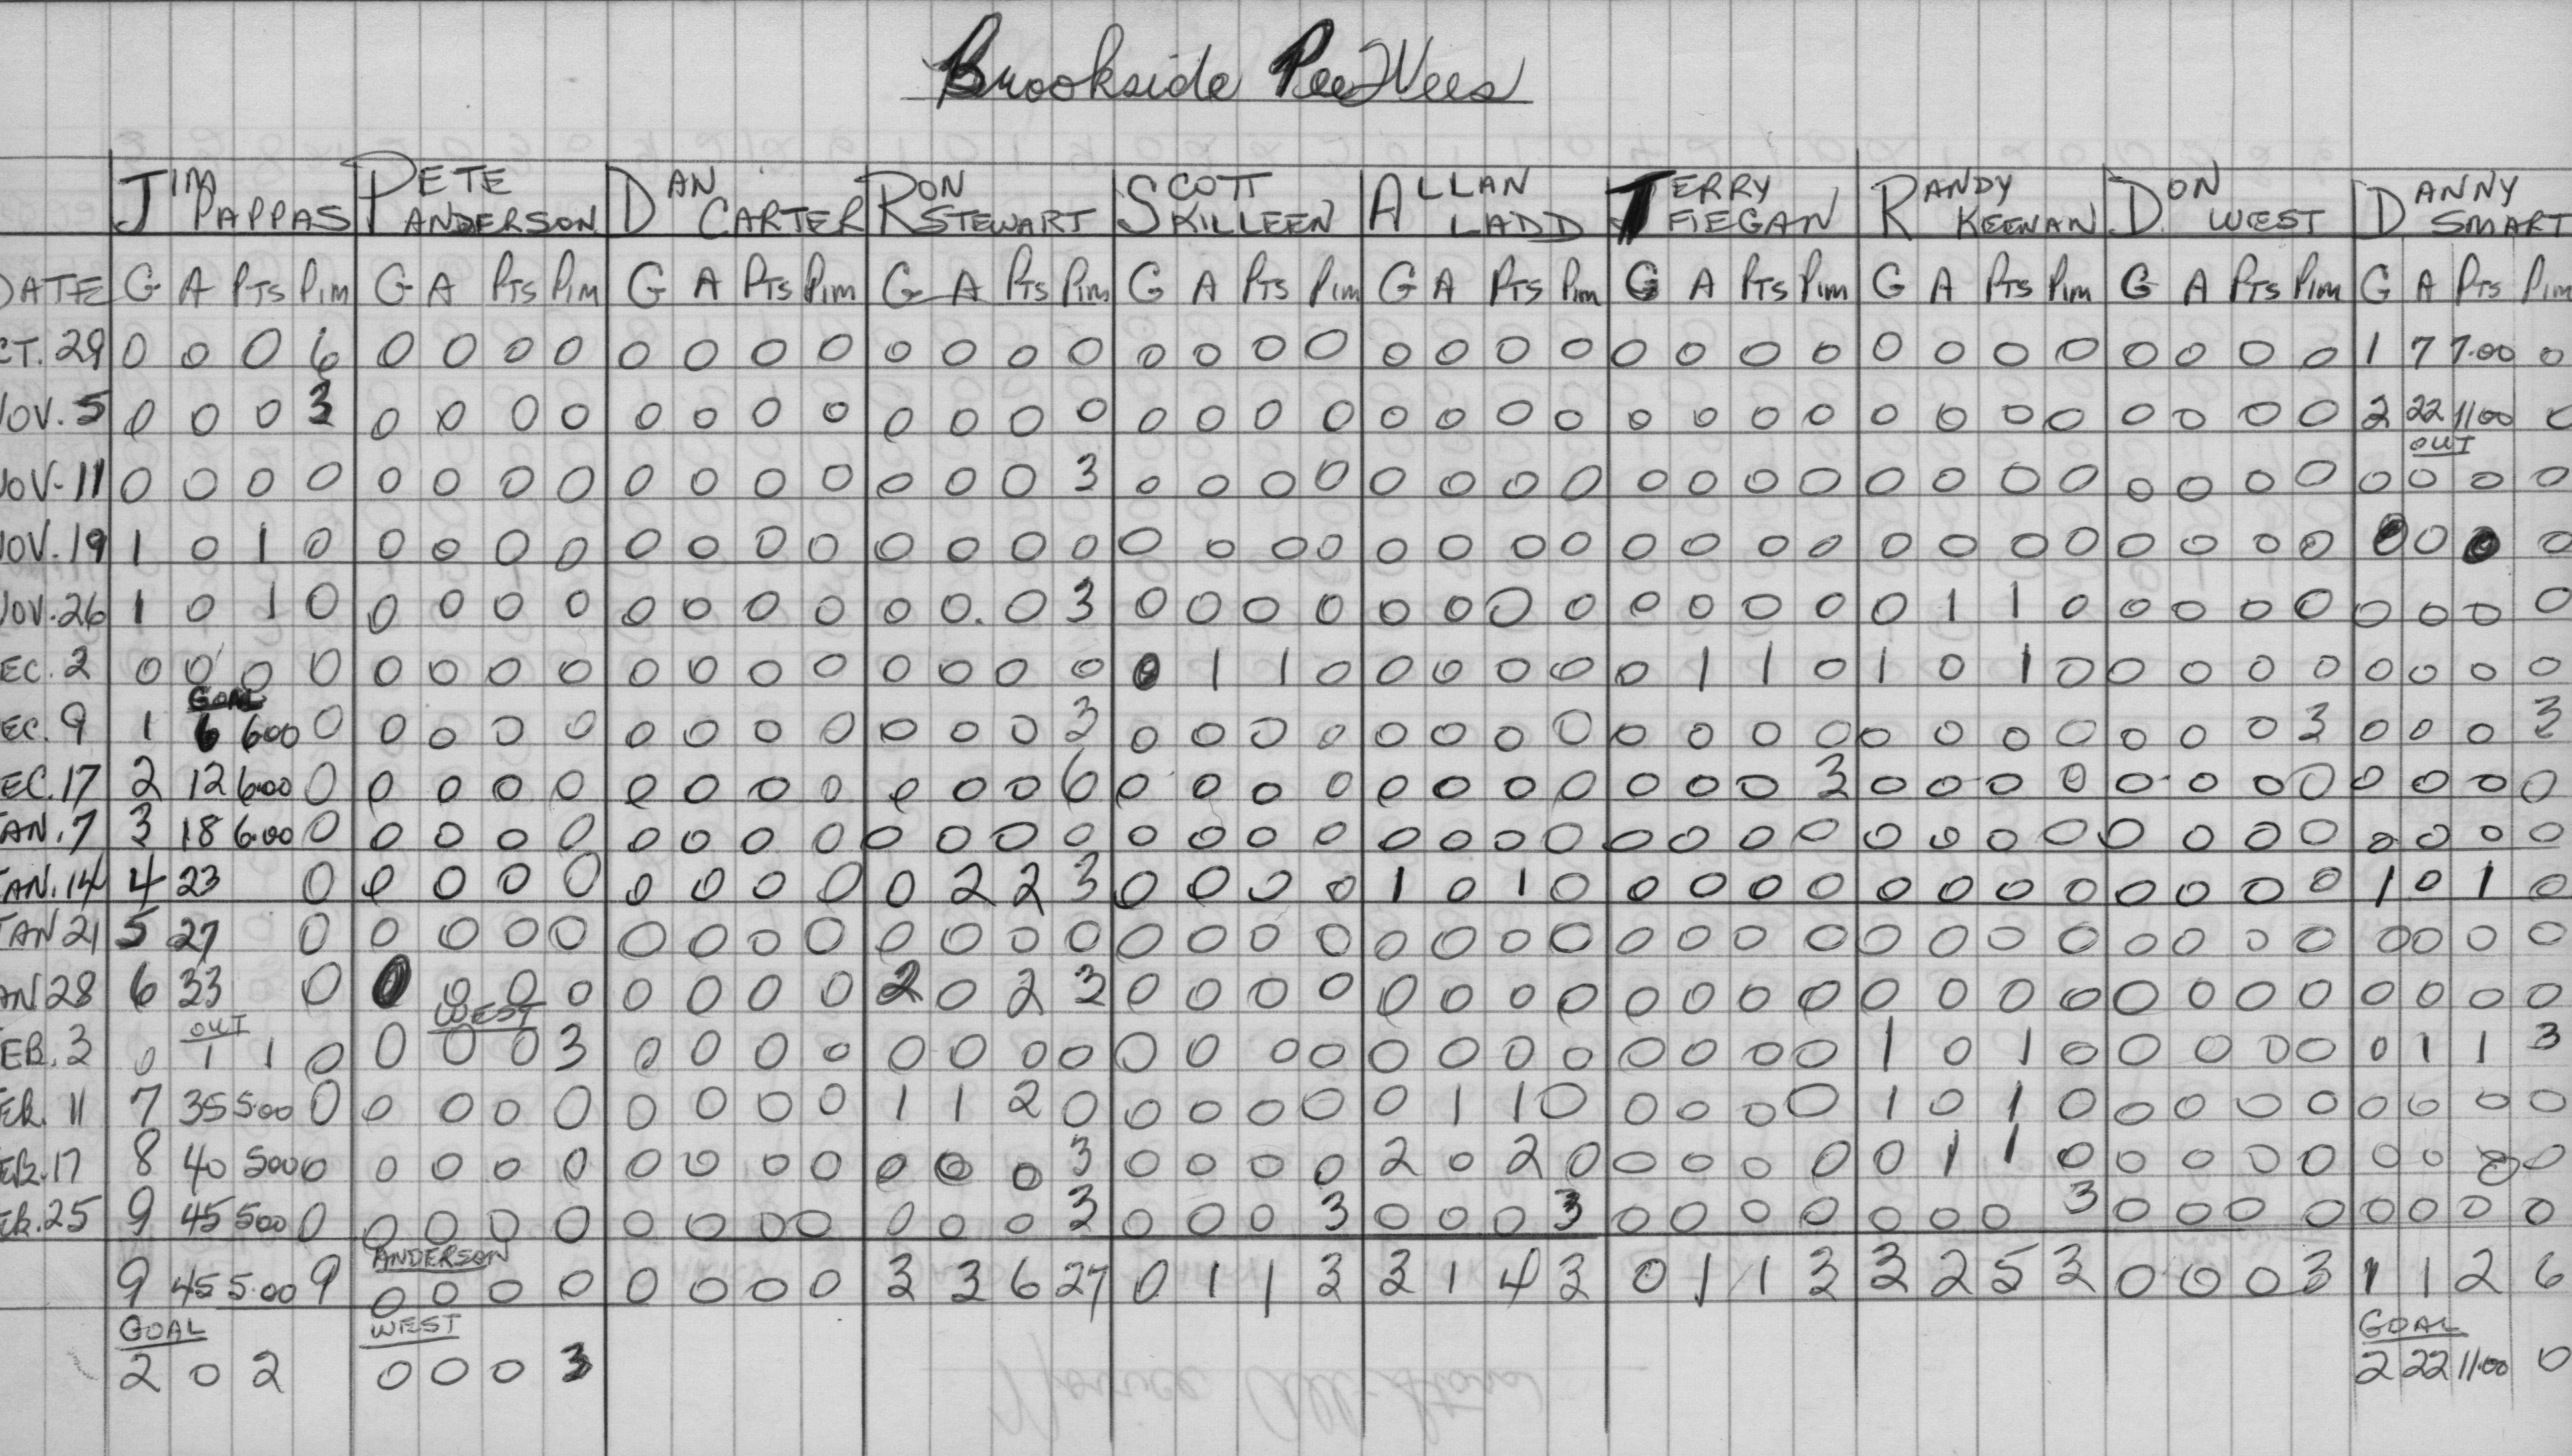 Brookside PeeWees
JIM PAPPAS PETE ANDERSON DAN CARTER RON STEWART SCOTT SKILLEEN ALLAN LADD TERRY FIEGAN RANDY KEENAN DON WEST DANNY SMART
DATE G A PTS PIM G A PTS PIM G A PTS PIM G A PTS PIM G A PTS PIM G A PTS PIM G A PTS PIM G A PTS PIM G A PTS PIM G A PTS PIM
CT. 29 0 0 0 6 0 0 0 0 0 0 0 0 0 0 0 0 0 0 0 0 0 0 0 0 0 0 0 0 0 0 0 0 0 0 0 0 1 7 7.00 0
NOV. 5 0 0 0 3 0 0 0 0 0 0 0 0 0 0 0 0 0 0 0 0 0 0 0 0 0 0 0 0 0 0 0 0 0 0 0 0 2 22 11.00 0
OUT
NOV. 11 0 0 0 0 0 0 0 0 0 0 0 0 0 0 0 3 0 0 0 0 0 0 0 0 0 0 0 0 0 0 0 0 0 0 0 0 0 0 0 0
NOV. 19 1 0 1 0 0 0 0 0 0 0 0 0 0 0 0 0 0 0 0 0 0 0 0 0 0 0 0 0 0 0 0 0 0 0 0 0 0 0 0 0
NOV. 26 1 0 1 0 0 0 0 0 0 0 0 0 0 0. 0 3 0 0 0 0 0 0 0 0 0 0 0 0 0 1 1 0 0 0 0 0 0 0 0 0
EC. 2 0 0 0 0 0 0 0 0 0 0 0 0 0 0 0 0 0 1 1 0 0 0 0 0 0 1 1 0 1 0 1 0 0 0 0 0 0 0 0 0
GOAL
EC. 9 1 6 6.00 0 0 0 0 0 0 0 0 0 0 0 0 3 0 0 0 0 0 0 0 0 0 0 0 0 0 0 0 0 0 0 0 3 0 0 0 3
EC. 17 2 12 6.00 0 0 0 0 0 0 0 0 0 0 0 0 6 0 0 0 0 0 0 0 0 0 0 0 3 0 0 0 0 0 0 0 0 0 0 0 0
AN. 7 3 18 6.00 0 0 0 0 0 0 0 0 0 0 0 0 0 0 0 0 0 0 0 0 0 0 0 0 0 0 0 0 0 0 0 0 0 0 0 0 0
AN. 14 4 23 0 0 0 0 0 0 0 0 0 0 2 2 3 0 0 0 0 1 0 1 0 0 0 0 0 0 0 0 0 0 0 0 0 1 0 1 0
JAN 21 5 27 0 0 0 0 0 0 0 0 0 0 0 0 0 0 0 0 0 0 0 0 0 0 0 0 0 0 0 0 0 0 0 0 0 0 0 0 0
AN 28 6 33 0 0 0 0 0 0 0 0 0 2 0 2 3 0 0 0 0 0 0 0 0 0 0 0 0 0 0 0 0 0 0 0 0 0 0 0 0
OUT WEST
FEB. 3 0 1 1 0 0 0 0 3 0 0 0 0 0 0 0 0 0 0 0 0 0 0 0 0 0 0 0 0 1 0 1 0 0 0 0 0 0 1 1 3
FEB. 11 7 35 5.00 0 0 0 0 0 0 0 0 0 1 1 2 0 0 0 0 0 0 1 1 0 0 0 0 0 1 0 1 0 0 0 0 0 0 0 0 0
EB. 17 8 40 500 0 0 0 0 0 0 0 0 0 0 0 0 3 0 0 0 0 2 0 2 0 0 0 0 0 0 1 1 0 0 0 0 0 0 0 0 0
EB. 25 9 45 500 0 0 0 0 0 0 0 0 0 0 0 0 3 0 0 0 3 0 0 0 3 0 0 0 0 0 0 0 3 0 0 0 0 0 0 0 0
ANDERSON
9 45 5.00 9 0 0 0 0 0 0 0 0 3 3 6 27 0 1 1 3 3 1 4 3 0 1 1 3 3 2 5 3 0 0 0 3 1 1 2 6
GOAL WEST GOAL
2 0 2 0 0 0 3 2 22 11.00 0